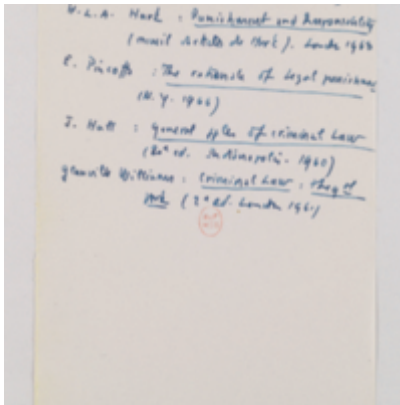 H.L.A. Hart : Punishment and Responsibility
(recueil articles de Hart). London 1968
E. Pincoffs : The rationale of legal punishment
(N.Y. 1966)
J. Hall : General pples of criminal Law
(2d ed. Indianapolis - 1960)
Glanville Williams : Criminal Law : The gal
(2d ed. London 1961)